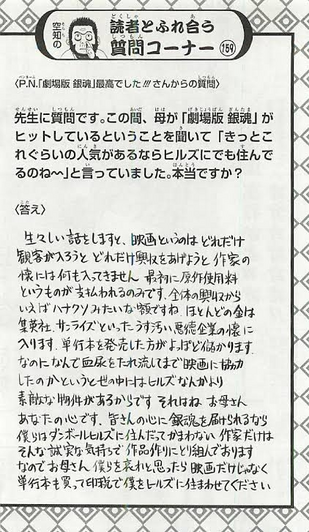 空知の
読者とふれ合う
質問コーナー
159
〈P.N.「劇場版 銀魂」最高でした!!!さんからの質問〉
先生に質問です。この間、母が「劇場版 銀魂」が
ヒットしているということを聞いて「きっとこ
れぐらいの人気があるならヒルズにでも住んで
るのね〜〜」と言っていました。本当ですか?
〈答え〉
生々しい話をしますと、映画というのは どれだけ
観客が入ろうと どれだけ興収をあげようと 作家の
懐には何も入ってきません 最初に原作使用料
というものが支払われるのみです。全体の興収から
いえばハナクソみたいな額ですね ほとんどの金は
集英社、サンライズといったうす汚い悪徳企業の懐に
入ります。単行本を発売した方がよっぽど儲かります
なのになんで血尿をたれ流してまで映画に協力
したのかというと 世の中にはヒルズなんかより
素敵な物件があるからです それはね お母さん
あなたの心です。皆さんの心に銀魂を届けられるなら
僕らはダンボールヒルズに住んだってかまわない 作家だけは
そんな誠実な気持ちで作品作りにとり組んでおります
なのでお母さん 僕らを哀れと思ったら映画だけじゃなく
単行本も買って印税で僕をヒルズに住まわせてください